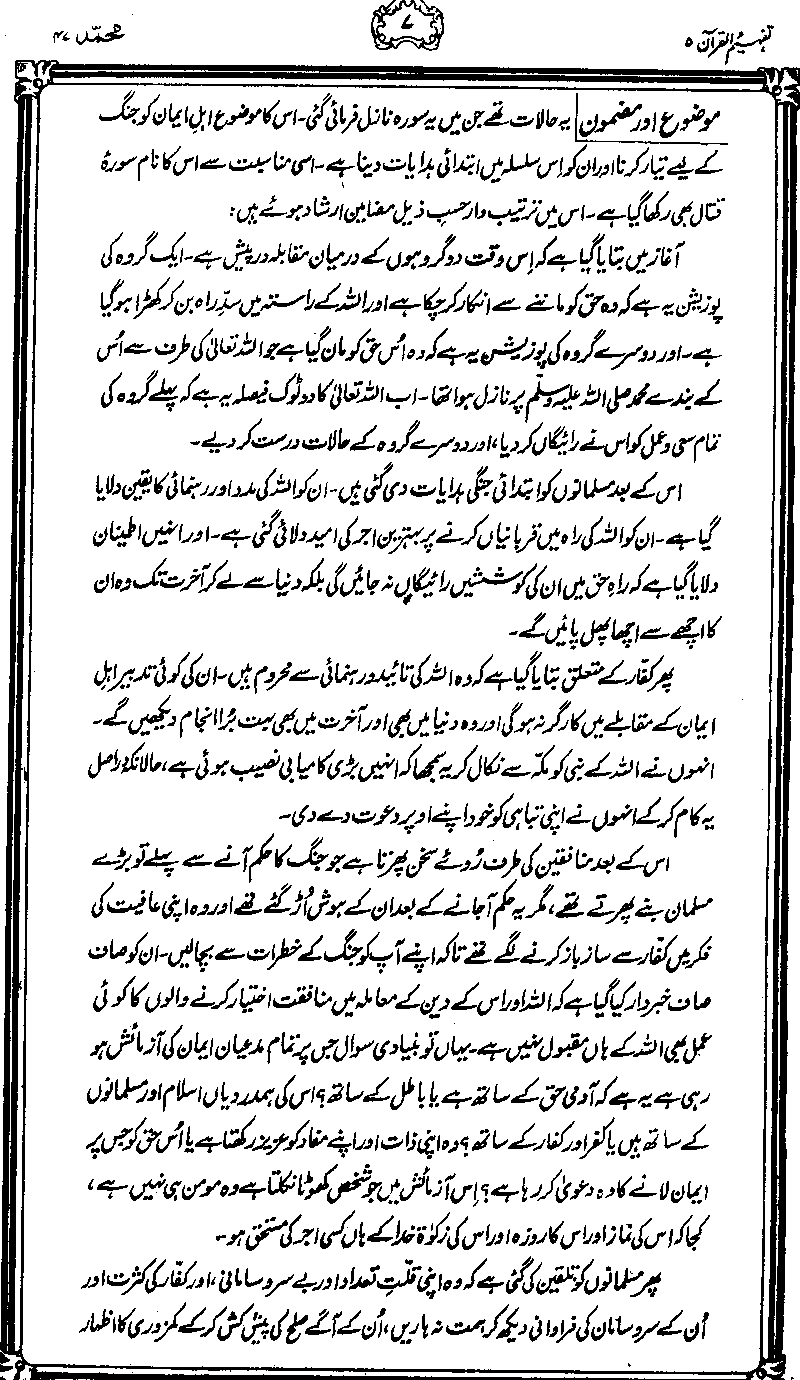 تفہیم القرآن ۵
۷
محمدؐ ۴۷
موضوع اور مضمون یہ حالات تھے جن میں یہ سورہ نازل فرمائی گئی۔ اس کا موضوع اہلِ ایمان کو جنگ
کے لیے تیار کرنا اور ان کو اس سلسلہ میں ابتدائی ہدایات دینا ہے۔ اسی مناسبت سے اس کا نام سورۂ
قتال بھی رکھا گیا ہے۔ اس میں ترتیب وار حسبِ ذیل مضامین ارشاد ہوئے ہیں:
آغاز میں بتایا گیا ہے کہ اِس وقت دو گروہوں کے درمیان مقابلہ درپیش ہے۔ ایک گروہ کی
پوزیشن یہ ہے کہ وہ حق کو ماننے سے انکار کر چکا ہے اور اللہ کے راستہ میں سدِّ راہ بن کر کھڑا ہو گیا
ہے۔ اور دوسرے گروہ کی پوزیشن یہ ہے کہ وہ اُس حق کو مان گیا ہے جو اللہ تعالیٰ کی طرف سے اُس
کے بندے محمد صلی اللہ علیہ وسلّم پر نازل ہوا تھا۔ اب اللہ تعالیٰ کا دوٹوک فیصلہ یہ ہے کہ پہلے گروہ کی
تمام سعی و عمل کو اس نے رائیگاں کر دیا، اور دوسرے گروہ کے حالات درست کر دیے۔
اس کے بعد مسلمانوں کو ابتدائی جنگی ہدایات دی گئی ہیں۔ ان کو اللہ کی مدد اور رہنمائی کا یقین دلایا
گیا ہے۔ ان کو اللہ کی راہ میں قربانیاں کرنے پر بہترین اجر کی امید دلائی گئی ہے۔ اور انہیں اطمینان
دلایا گیا ہے کہ راہِ حق میں ان کی کوششیں رائیگاں نہ جائیں گی بلکہ دنیا سے لے کر آخرت تک وہ ان
کا اچھے سے اچھا پھل پائیں گے۔
پھر کفار کے متعلق بتایا گیا ہے کہ وہ اللہ کی تائید و رہنمائی سے محروم ہیں۔ ان کی کوئی تدبیر اہلِ
ایمان کے مقابلے میں کارگر نہ ہوگی اور وہ دنیا میں بھی اور آخرت میں بھی بہت بُرا انجام دیکھیں گے۔
انہوں نے اللہ کے نبی کو مکہ سے نکال کر یہ سمجھا کہ انہیں بڑی کامیابی نصیب ہوئی ہے، حالانکہ دراصل
یہ کام کر کے انہوں نے اپنی تباہی کو خود اپنے اوپر دعوت دے دی۔
اس کے بعد منافقین کی طرف رُوئے سخن پھرتا ہے جو جنگ کا حکم آنے سے پہلے تو بڑے
مسلمان بنے پھرتے تھے، مگر یہ حکم آ جانے کے بعد ان کے ہوش اُڑ گئے تھے اور وہ اپنی عافیت کی
فکر میں کفار سے ساز باز کرنے لگے تھے تاکہ اپنے آپ کو جنگ کے خطرات سے بچالیں۔ ان کو صاف
صاف خبردار کیا گیا ہے کہ اللہ اور اس کے دین کے معاملہ میں منافقت اختیار کرنے والوں کا کوئی
عمل بھی اللہ کے ہاں مقبول نہیں ہے۔ یہاں تو بنیادی سوال جس پر تمام مدعیانِ ایمان کی آزمائش ہو
رہی ہے یہ ہے کہ آدمی حق کے ساتھ ہے یا باطل کے ساتھ؟ اس کی ہمدردیاں اسلام اور مسلمانوں
کے ساتھ ہیں یا کفر اور کفار کے ساتھ؟ وہ اپنی ذات اور اپنے مفاد کو عزیز رکھتا ہے یا اُس حق کو جس پر
ایمان لانے کا وہ دعویٰ کر رہا ہے؟ اِس آزمائش میں جو شخص کھوٹا نکلتا ہے وہ مومن ہی نہیں ہے،
کجا کہ اس کی نماز اور اس کا روزہ اور اس کی زکوٰۃ خدا کے ہاں کسی اجر کی مستحق ہو۔
پھر مسلمانوں کو تلقین کی گئی ہے کہ وہ اپنی قلّتِ تعداد اور بے سروسامانی، اور کفّار کی کثرت اور
اُن کے سروسامان کی فراوانی دیکھ کر ہمت نہ ہاریں، اُن کے آگے صلح کی پیش کش کر کے کمزوری کا اظہار